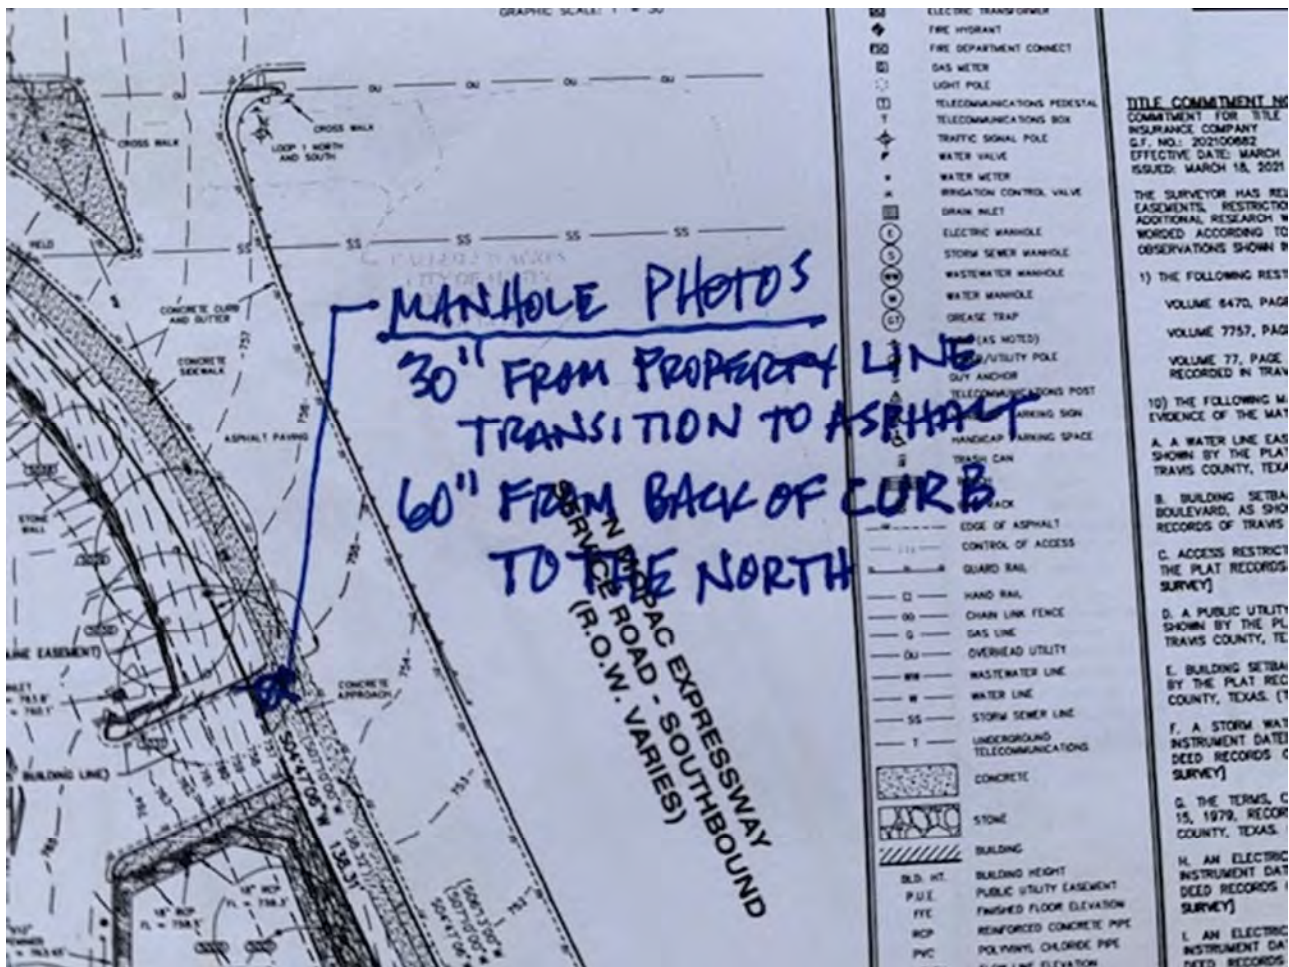 GRAPHIC SCALE: 1" = 30'
OU OU OU OU OU
CROSS WALK
CROSS WALK
LOOP 1 NORTH
AND SOUTH
SS SS SS SS SS
CONCRETE CURB
AND GUTTER
757
CONCRETE
SIDEWALK
756
ASPHALT PAVING
STONE
WALL
755
MANHOLE PHOTOS
30" FROM PROPERTY LINE
TRANSITION TO ASPHALT
60" FROM BACK OF CURB
TO THE NORTH
N MOPAC EXPRESSWAY
SERVICE ROAD - SOUTHBOUND
(R.O.W. VARIES)
754
CONCRETE
APPROACH
LINE EASEMENT)
BUILDING LINE)
S04°47'06"W 138.31'
753
752
18" RCP
18" RCP
ELECTRIC TRANSFORMER
FIRE HYDRANT
FDC FIRE DEPARTMENT CONNECT
G GAS METER
LIGHT POLE
T TELECOMMUNICATIONS PEDESTAL
T TELECOMMUNICATIONS BOX
TRAFFIC SIGNAL POLE
WATER VALVE
WATER METER
IRRIGATION CONTROL VALVE
DRAIN INLET
E ELECTRIC MANHOLE
S STORM SEWER MANHOLE
WW WASTEWATER MANHOLE
W WATER MANHOLE
GT GREASE TRAP
(AS NOTED)
/UTILITY POLE
GUY ANCHOR
TELECOMMUNICATIONS POST
PARKING SIGN
HANDICAP PARKING SPACE
TRASH CAN
EDGE OF ASPHALT
CONTROL OF ACCESS
GUARD RAIL
HAND RAIL
CHAIN LINK FENCE
G GAS LINE
OU OVERHEAD UTILITY
WW WASTEWATER LINE
W WATER LINE
SS STORM SEWER LINE
T UNDERGROUND
TELECOMMUNICATIONS
CONCRETE
STONE
BUILDING
BLD. HT. BUILDING HEIGHT
P.U.E. PUBLIC UTILITY EASEMENT
FFE FINISHED FLOOR ELEVATION
RCP REINFORCED CONCRETE PIPE
PVC POLYVINYL CHLORIDE PIPE
FLOW LINE ELEVATION
TITLE COMMITMENT NO
COMMITMENT FOR TITLE
INSURANCE COMPANY
G.F. NO.: 202100682
EFFECTIVE DATE: MARCH
ISSUED: MARCH 18, 2021
THE SURVEYOR HAS REL
EASEMENTS, RESTRICTIO
ADDITIONAL RESEARCH W
WORDED ACCORDING TO
OBSERVATIONS SHOWN IN
1) THE FOLLOWING REST
VOLUME 6470, PAGE
VOLUME 7757, PAG
VOLUME 77, PAGE
RECORDED IN TRAV
10) THE FOLLOWING MA
EVIDENCE OF THE MAT
A. A WATER LINE EAS
SHOWN BY THE PLAT
TRAVIS COUNTY, TEXA
B. BUILDING SETBA
BOULEVARD, AS SHO
RECORDS OF TRAVIS
C. ACCESS RESTRICT
THE PLAT RECORDS
SURVEY]
D. A PUBLIC UTILITY
SHOWN BY THE PL
TRAVIS COUNTY, TE
E. BUILDING SETBA
BY THE PLAT REC
COUNTY, TEXAS. (T
F. A STORM WAT
INSTRUMENT DATE
DEED RECORDS O
SURVEY]
G. THE TERMS, C
15, 1979, RECOR
COUNTY, TEXAS.
H. AN ELECTRIC
INSTRUMENT DAT
DEED RECORDS
SURVEY]
I. AN ELECTRIC
INSTRUMENT DA
DEED RECORDS